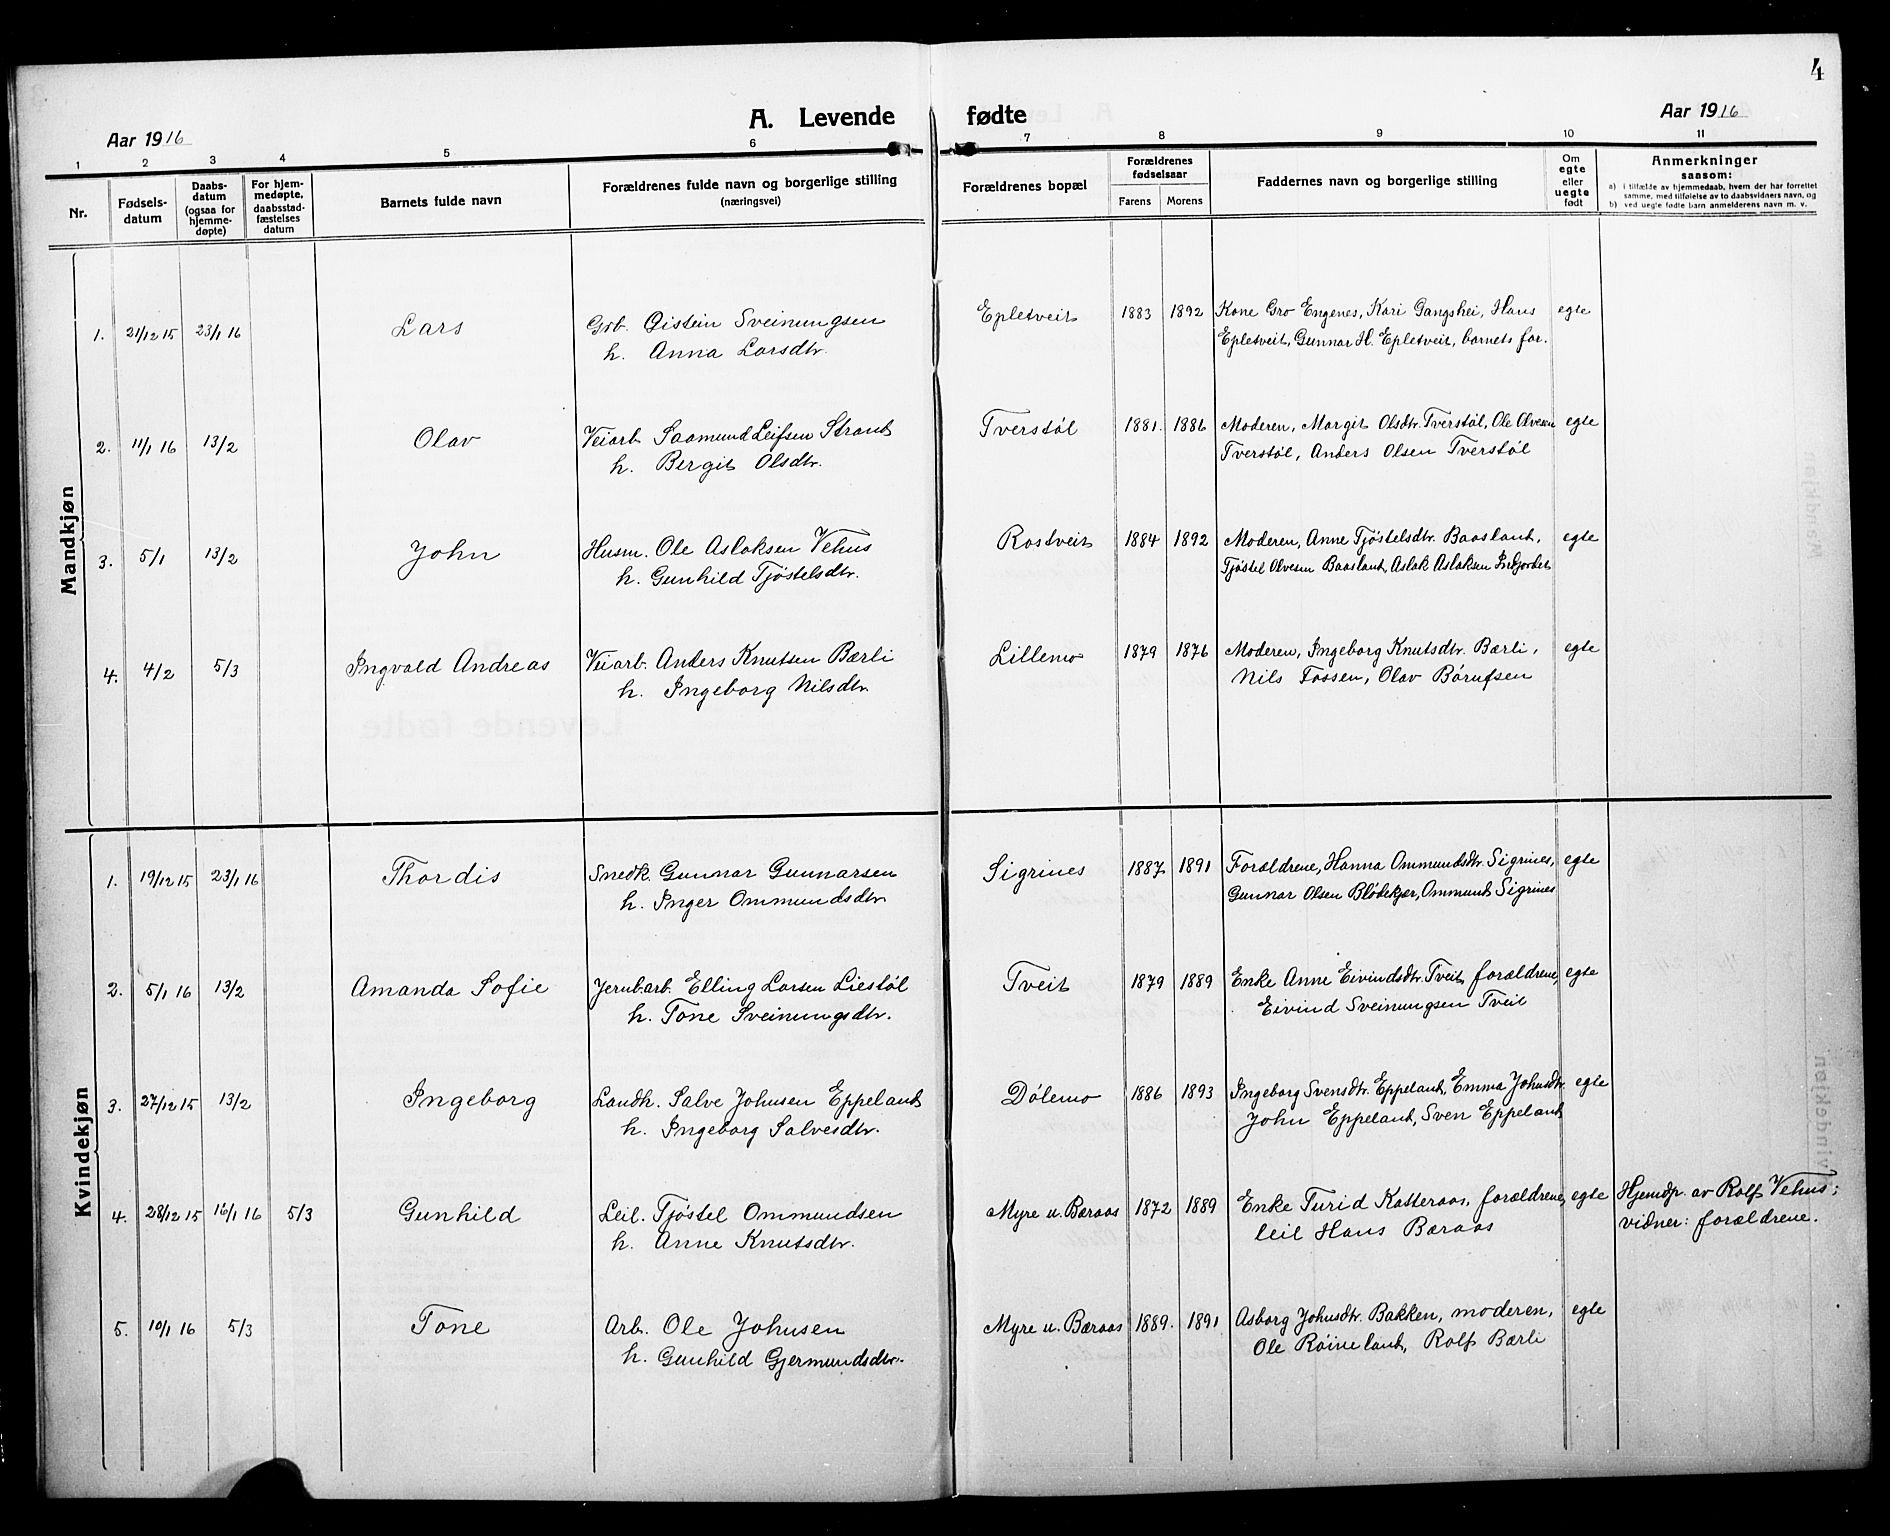 4
A. Levende fødte
Aar 1916
Aar 1916
1 2 3 4 5 6 7 8 9 10 11
Nr.
Fødselsdatum
Daabsdatum (ogsaa for hjemmedøpte)
For hjemmedøpte, daabsstadfæstelses datum
Barnets fulde navn
Forældrenes fulde navn og borgerlige stilling
(næringsvei)
Forældrenes bopæl
Forældrenes fødselsaar
Farens Morens
Faddernes navn og borgerlige stilling
Om egte eller uegte født
Anmerkninger saasom:
a) i tilfælde av hjemmedaab, hvem der har forrettet samme, med tilføielse av to daabsvidners navn, og
b) ved uegte fødte barn anmelderens navn m. v.
Mandkjøn
1. 21/12 15 23/1 16 Lars Grb. Øistein Sveinungsen Epletveit 1883 1892 Kone Gro Engenes, Kari Gangshei, Hans egte
h. Anna Larsdtr. Epletveit, Gunnar H. Epletveit, barnets far.
2. 11/1 16 13/2 Olav Veiarb. Saamund Leifsen Strand Tverstøl 1881. 1886 Moderen, Margit Olsdtr. Tverstøl, Ole Olvesen egte
h. Bergit Olsdtr. Tverstøl, Anders Olsen Tverstøl
3. 5/1 13/2 John Husm. Ole Aslaksen Vehus Rostveit 1884 1892 Moderen, Anne Tjøstelsdtr. Baasland, egte
h. Gunhild Tjøstelsdtr. Tjøstel Olvesen Baasland, Aslak Aslaksen Indjordet
4. 4/2 5/3 Ingvald Andreas Veiarb. Anders Knutsen Bærli Lillemo 1879 1876 Moderen, Ingeborg Knutsdtr. Bærli, egte
h. Ingeborg Nilsdtr. Nils Fossen, Olav Børufsen
Kvindekjøn
1. 19/12 15 23/1 16 Thordis Snedk. Gunnar Gunnarsen Sigrines 1887 1891 Forældrene, Hanna Ommundsdtr. Sigrines, egte
h. Inger Ommundsdtr Gunnar Olsen Blødekjær, Ommund Sigrines
2. 5/1 16 13/2 Amanda Sofie Jernbarb. Elling Larsen Liestøl Tveit 1879 1889 Enke Anne Eivindsdtr. Tveit, forældrene, egte
h. Tone Sveinungsdtr. Eivind Sveinungsen Tveit
3. 27/12 15 13/2 Ingeborg Landh. Salve Johnsen Eppeland Dølemo 1886 1893 Ingeborg Svensdtr. Eppeland, Emma Johnsdtr. egte
h. Ingeborg Salvesdtr. John Eppeland, Sven Eppeland
4. 28/12 15 16/1 16 5/3 Gunhild Leil. Tjøstel Ommundsen Myre u. Bæraas 1872 1889 Enke Turid Katteraas, forældrene, egte Hjemdp. av Rolf Vehus;
h. Anne Knutsdtr. leil Hans Bæraas vidner: forældrene.
5. 10/1 16 5/3 Tone Arb. Ole Johnsen Myre u. Bæraas 1889. 1891 Asborg Johnsdtr. Bakken, moderen, egte
h. Gunhild Gjermundsdtr. Ole Røineland, Rolf Bærli